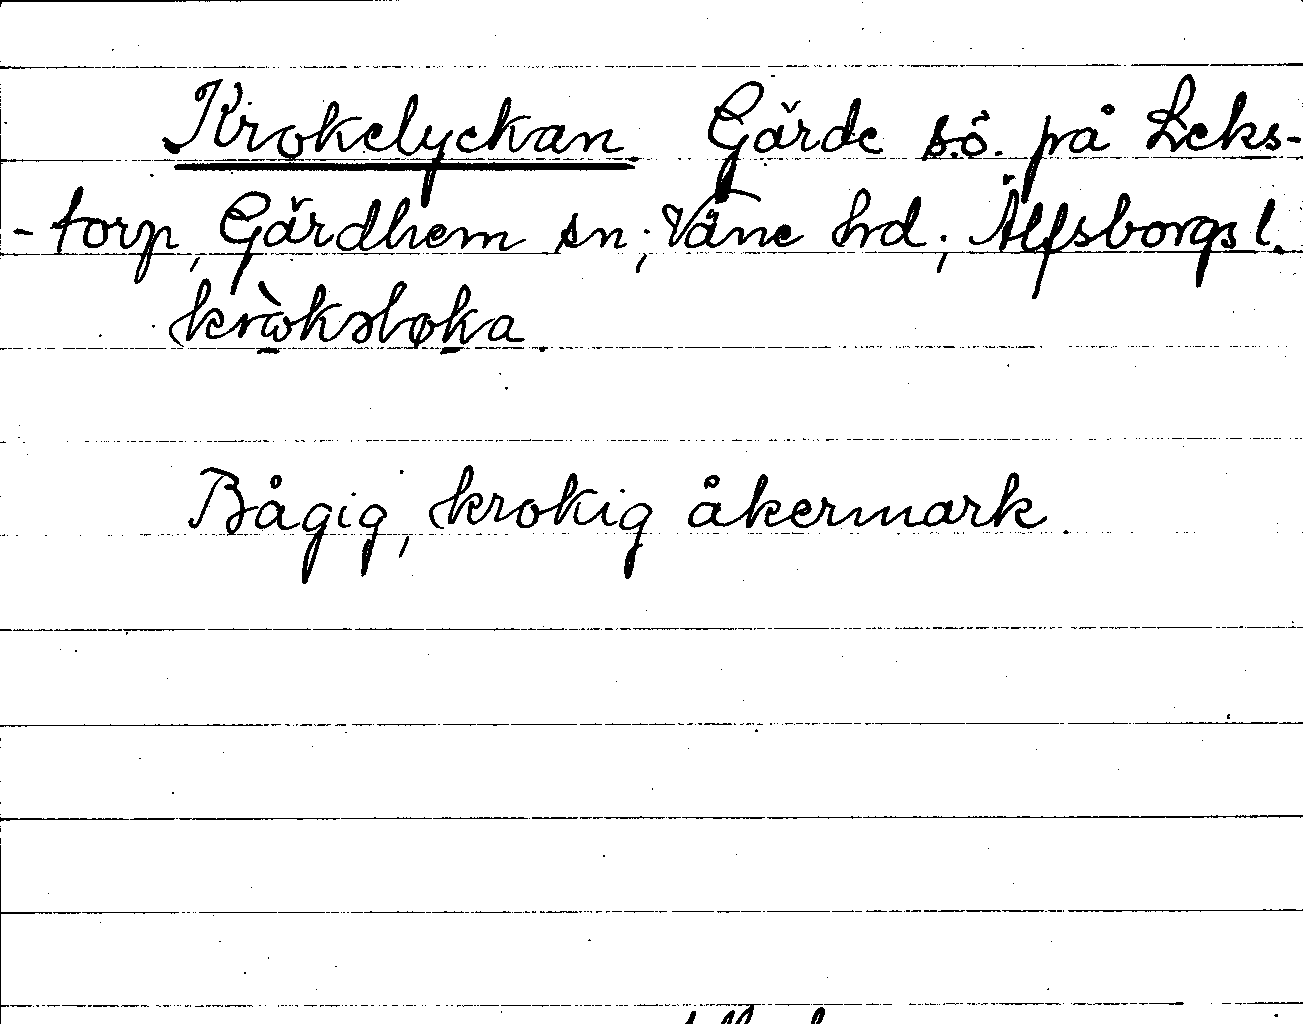 Krokelyckan. Gärde s.ö. på Leks-
-torp, Gärdhem sn; Väne hrd; Älfsborgs l.
kròkəløka.
Bågig, krokig åkermark.